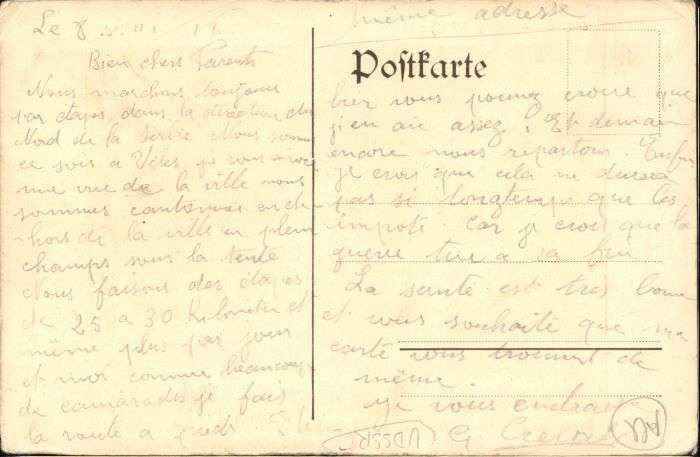 Le 8
Bien chers Parents
Nous marchons toujours
par étapes dans la direction du
Nord de la Serbie Nous sommes
ce soir a Veles je vous envoi
une vue de la ville nous
sommes cantonnés en
hors de la ville en plein
champs sous la tente
Nous faisons des étapes
de 25 a 30 Kilometres et
même plus par jour
et moi comme beaucoup
de camarades je fais
la route a pied
même adresse
Postkarte
vous pouvez croire que
j'en ai assez, Et demain
encore nous repartons. Enfin
je crois que cela ne durera
pas si longtemps que les
impots car je crois que la
guerre tire a sa fin
La santé est tres bonne
et vous souhaite que ma
carte vous trouvent de
même.
je vous embrasse
G
UDSSR